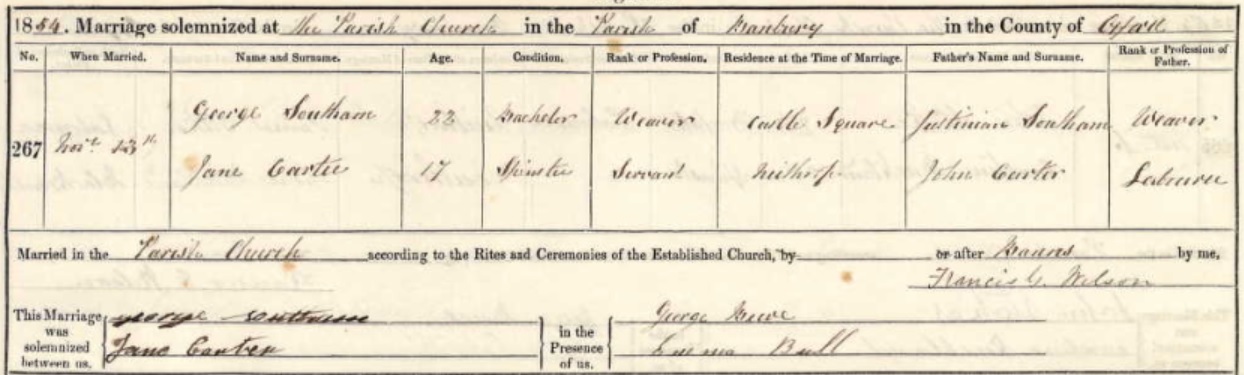 1854. Marriage solemnized at the Parish Church in the Parish of Banbury in the County of Oxford
No. When Married. Name and Surname. Age. Condition. Rank or Profession. Residence at the Time of Marriage. Father's Name and Surname. Rank or Profession of Father.
George Southam 22 Bachelor Weaver Castle Square Justinian Southam Weaver
267 Novr.
Jane Carter 17 Spinster Servant Neithrop John Carter Labourer
Married in the Parish Church according to the Rites and Ceremonies of the Established Church, by or after Banns by me,
Francis G. Wilson
This Marriage was solemnized between us,
George Southam
Jane Carter
in the Presence of us.
George
Emma Bull